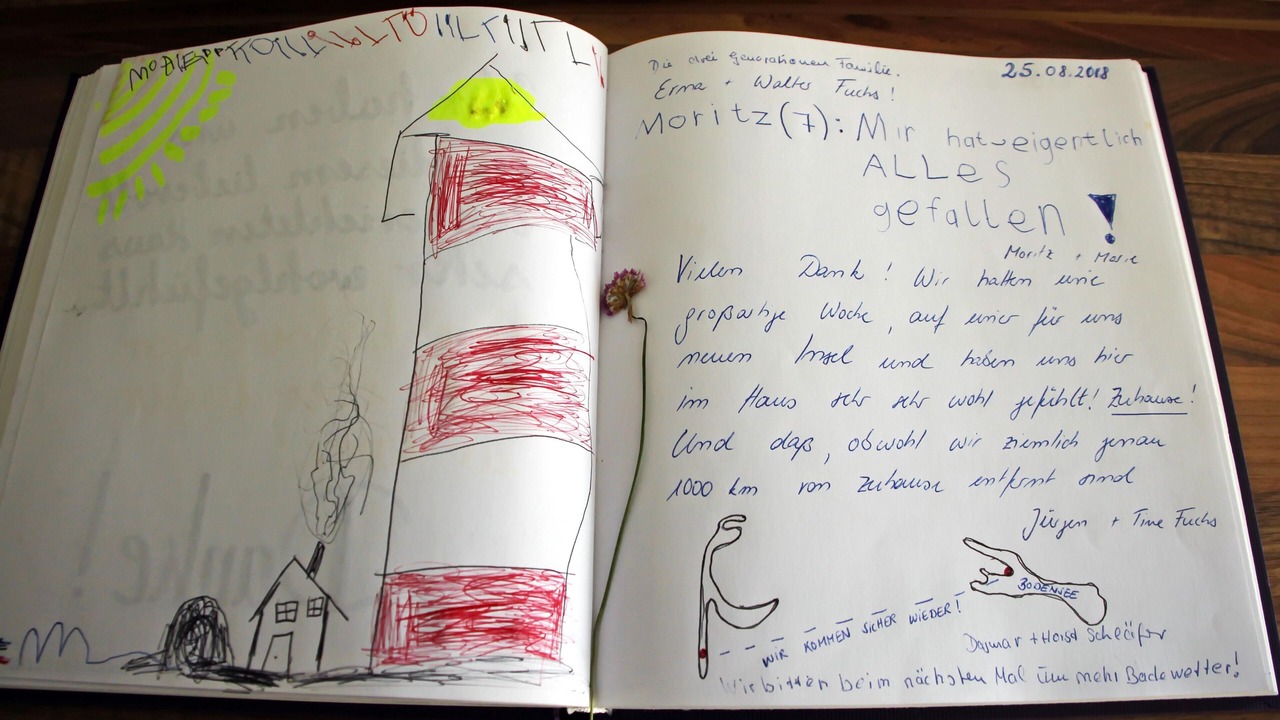 Die drei Generationen Familie.
25.08.2018
Erma + Walter Fuchs!
Moritz(7): Mir hat eigentlich
ALLes
gefallen!
Moritz + Marie
Vielen Dank! Wir hatten eine
großartige Woche, auf einer für uns
neuen Insel und haben uns hier
im Haus sehr sehr wohl gefühlt! Zuhause!
Und daß, obwohl wir ziemlich genau
1000 km von Zuhause entfernt sind
Jürgen + Tine Fuchs
BODENSEE
WIR KOMMEN SICHER WIEDER!
Dagmar + Horst Schleifer
Wir bitten beim nächsten Mal um mehr Badewetter!